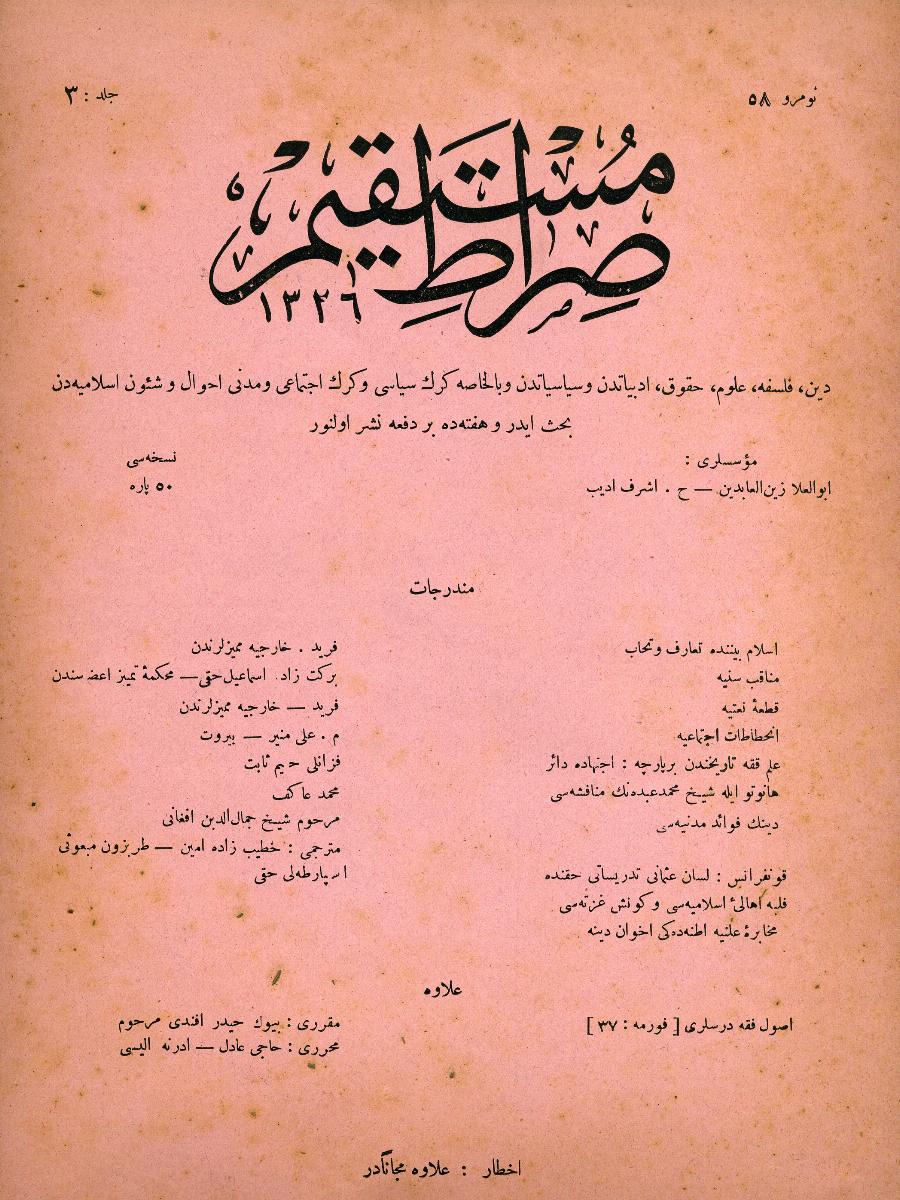 نومرو ٥٨
جلد : ٣
صِراطِ مُستَقيم
١٣٢٦
دين، فلسفه، علوم، حقوق، ادبياتدن وسياسياتدن وبالخاصه كرك سياسى وكرك اجتماعى ومدنى احوال و شئون اسلاميه‌دن
بحث ايدر و هفته‌ده بر دفعه نشر اولنور
مؤسسلرى :
ابوالعلا زين‌العابدين — ح . اشرف اديب
نسخه‌سى
٥٠ پاره
مندرجات
اسلام بيننده تعارف وتحاب
فريد . خارجيه مميزلرندن
مناقب سنيه
بركت زاد. اسماعيل‌حقى — محكمهٔ تميز اعضه‌سندن
قطعهٔ نعتيه
فريد — خارجيه مميزلرندن
انحطاطات اجتماعيه
م . على منير — بيروت
علم فقه تاريخندن برپارچه : اجتهاده دائر
قزانلى حيم ثابت
هانوتو ايله شيخ محمدعبده‌نك مناقشه‌سى
محمد عاكف
دينك فوائد مدنيه‌سى
مرحوم شيخ جمال‌الدين افغانى
مترجمى : خطيب زاده امين — طربزون مبعوثى
قونفرانس : لسان عثمانى تدريساتى حقنده
اسپارطه‌لى حقى
فلبه اهالئ اسلاميه‌سى وكونش غزته‌سى
مخابرهٔ علنيه اطنه‌ده‌كى اخوان دينه
علاوه
اصول فقه درسلرى [ فورمه : ٣٧ ]
مقررى : بيوك حيدر افندى مرحوم
محررى : حاجى عادل — ادرنه اليسى
اخطار : علاوه مجاناًدر